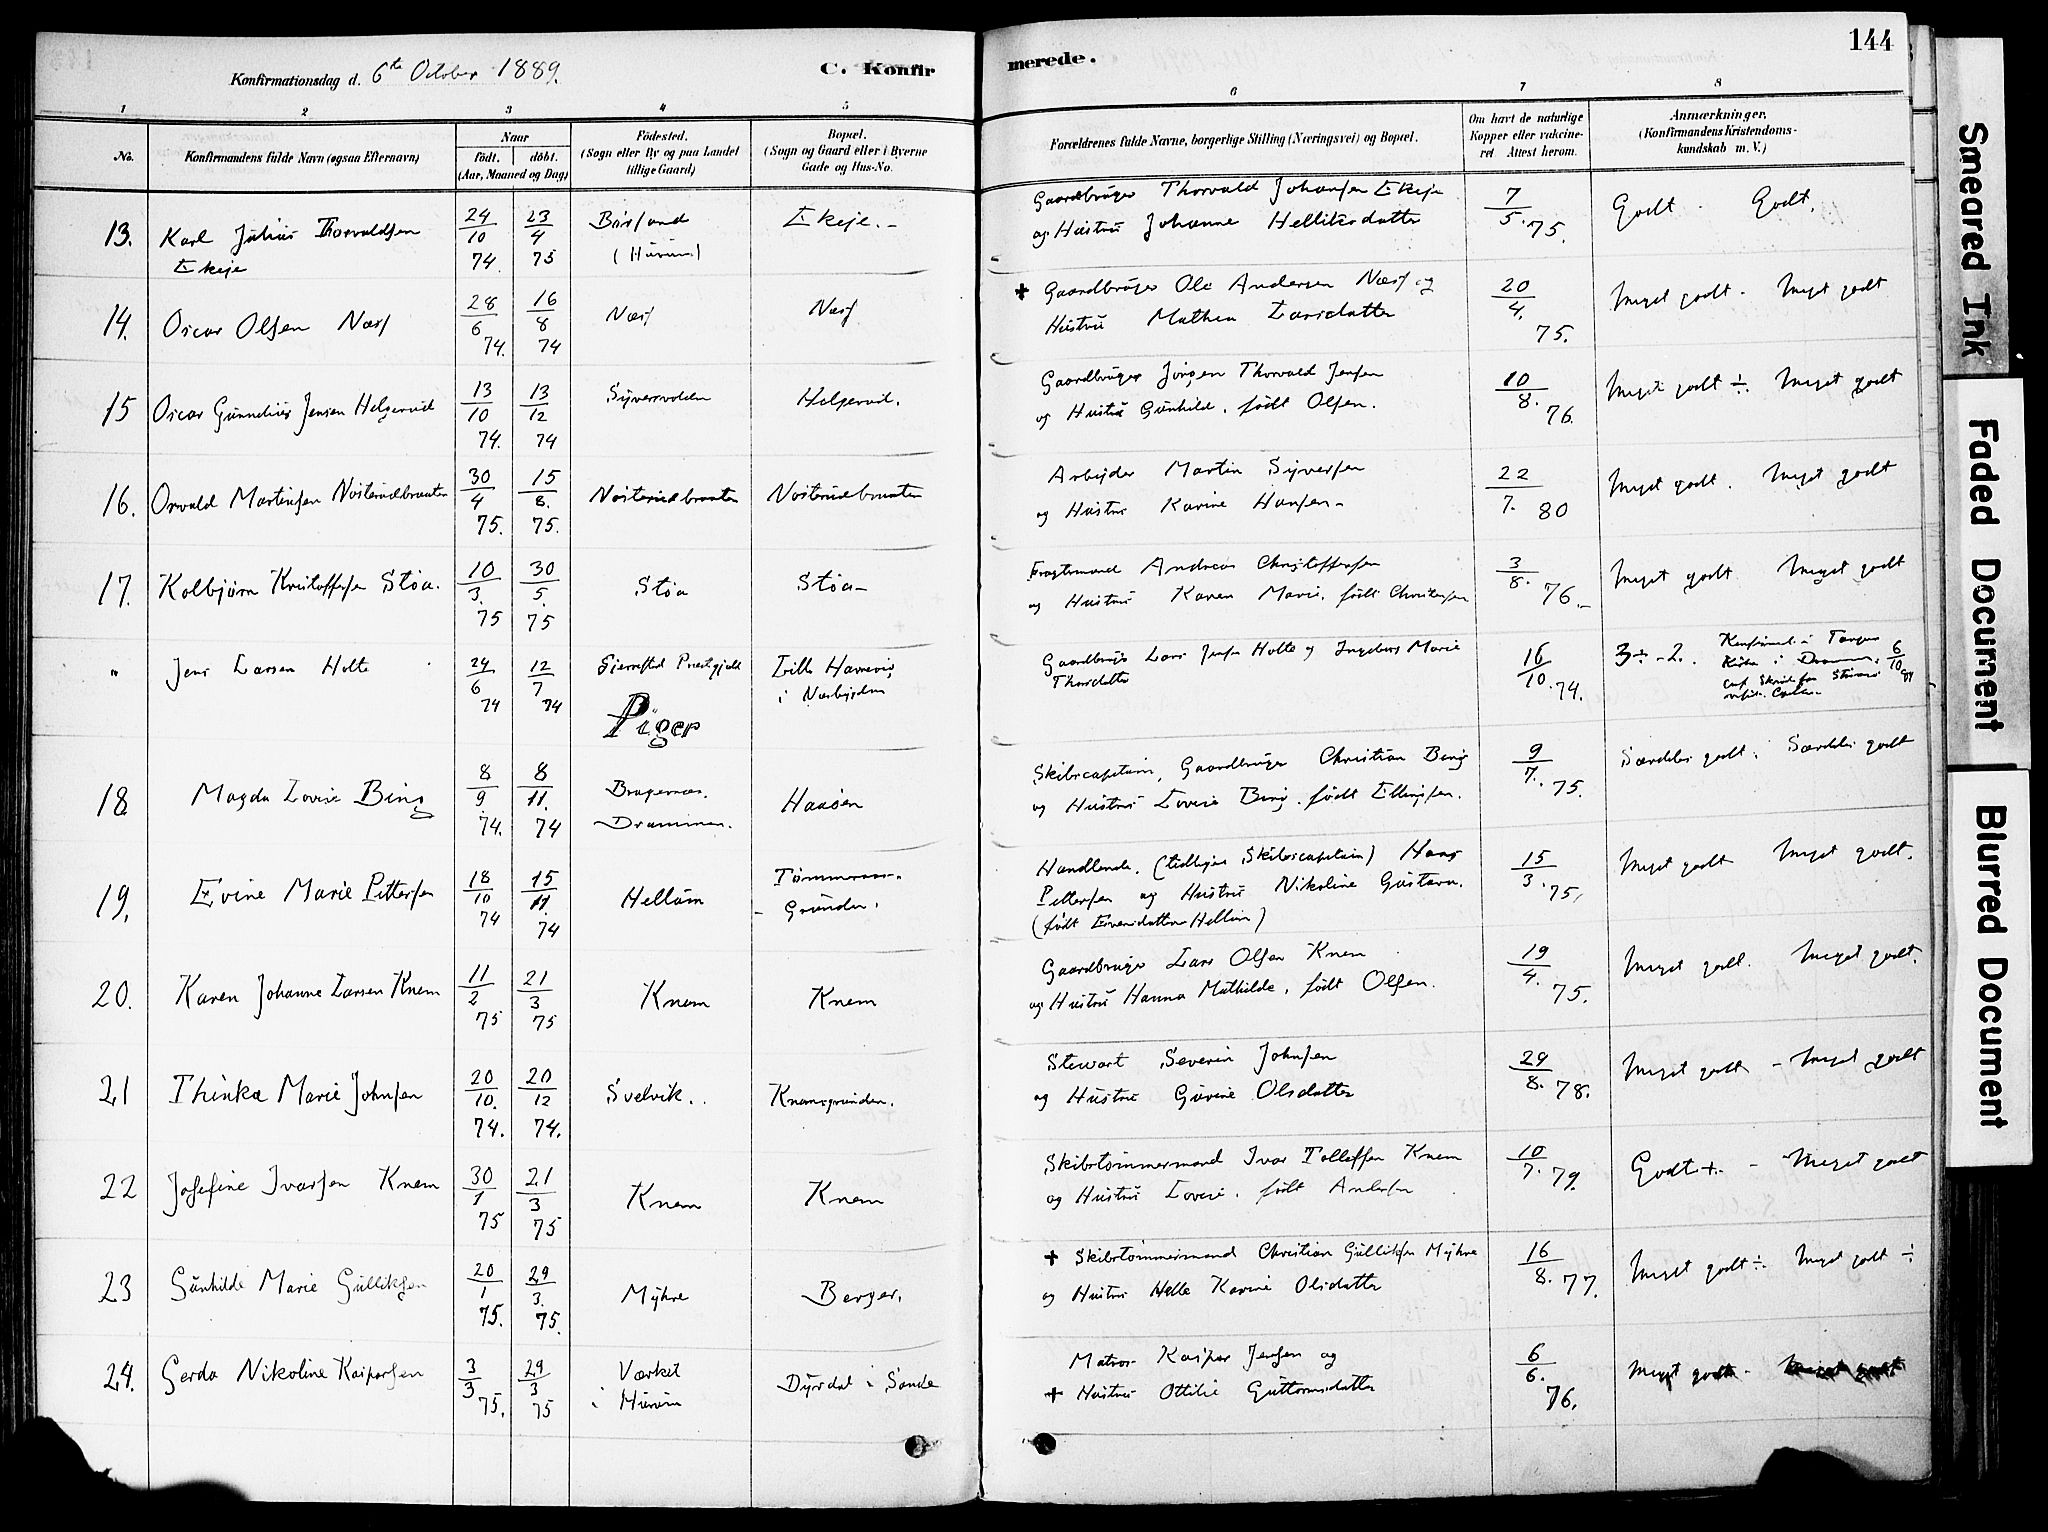 144
Konfirmationsdag d. 6te October 1889.
C. Konfirmerede.
1 2 3 4 5 6 7 8
No.
Konfirmandens fulde Navn (ogsaa Efternavn)
Naar
født. døbt.
(Aar, Maaned og Dag)
Fødested.
(Sogn eller By og paa Landet
tillige Gaard)
Bopæl.
(Sogn og Gaard eller i Byerne
Gade og Hus-No.
Forældrenes fulde Navne, borgerlige Stilling (Næringsvei) og Bopæl.
Om havt de naturlige
Kopper eller vakcine-
ret Attest herom.
Anmærkninger.
(Konfirmandens Kristendoms-
kundskab m. V.)
13. Karl Julius Thorvaldsen
Ekeje
24/10 74 23/4 75
(Hurum)
Ekeje.-
Gaardbruger Thorvald Johansen Ekeje
og Hustru Johanne
7/5. 75.
Godt - Godt.
14. Oscar Olsen Næss
28/6 74. 16/8 74
Næss
Næss
+ Gaardbruger Ole Andersen Næss og
Hustru Mathea Larsdatter
20/4. 75.
Meget godt - Meget godt
15 Oscar Gunnelius Jensen Helgervid
13/10 74. 13/12 74
Helgervid.
Gaardbruger Jørgen Thorvald Jensen
og Hustru Gunhild, født Olsen.
10/8. 76.
Meget godt ÷. Meget godt
16. Osvald Martinsen Nosterudbraaten
30/4 75. 15/8. 75.
Nosterudbraaten
Nosterudbraaten
Arbejder Martin Syversen
og Hustru Karine Hansen-
22/7. 80
Meget godt. Meget godt
17. Kolbjørn Kristoffersen Støa.
10/3. 75 30/5. 75
Støa
Støa-
Fragtemand Andreas Christoffersen
og Hustru Karen Marie, født Christensen
3/8. 76.-
Meget godt Meget godt
" Jens Larsen Holte
24/6 74 12/7 74
Præstgjeld
Lille
i
Gaardbruger Lars Jensen Holte og Ingeborg Marie
Thorsdatter
16/10. 74.
3÷ -2. Konfirmed i
Kirke i Drammen, 6/10 89
Piger
18. Magda Lovise Bing
8/9 74. 8/11. 74
Bragernæs.
Drammen.
Haaøen
Skibscapitain, Gaardbruger Christian Bing
og Hustru Lovise Bing, født Ellingsen.
9/7. 75.
Særdeles godt. Særdeles godt
19. Evine Marie Pettersen
18/10 74 15/11. 74
Hellum
Tømmeraas-
Grunden.
Handlende. (tidligere Skibscapitain) Hans
Pettersen og Hustru Nikoline Gustava.
(født Evensdatter Hellum)
15/3. 75.
Meget godt Meget godt.
20. Karen Johanne Larsen Knem
11/2 75 21/3 75
Knem
Knem
Gaardbruger Lars Olsen Knem
og Hustru Hanna Mathilde, født Olsen.
19/4. 75.
Meget godt. Meget godt.
21 Thinka Marie Johnsen
20/10. 74. 20/12 74.
Svelvik.
Knemsgrunden.
Stewart Severin Johnsen
og Hustru Gurine Olsdatter
29/8. 78.
Meget godt - Meget godt
22 Josefine Ivarsen Knem
30/1 75 21/3 75
Knem
Knem
Skibstømmermand Ivar Tollefsen Knem
og Hustru Lovise, født Andersen
10/7. 79.
Godt+. - Meget godt
23 Gunhilde Marie Gulliksen
20/1 75. 29/3. 75.
Myhre
Berger.
+ Skibstømmermand Christian Gulliksen Myhre
og Hustru Helle Karine Olsdatter
16/8. 77.
Meget godt÷. Meget godt ÷
24. Gerda Nikoline Kasparsen
3/3 75. 29/3 75
Værket
i Hurum
Dyrdal i Sande
Matros Kaspar Jensen og
+ Hustru Ottilie Guttormsdatter
6/6. 76.
Meget godt -
Smeared Ink
Faded Document
Blurred Document